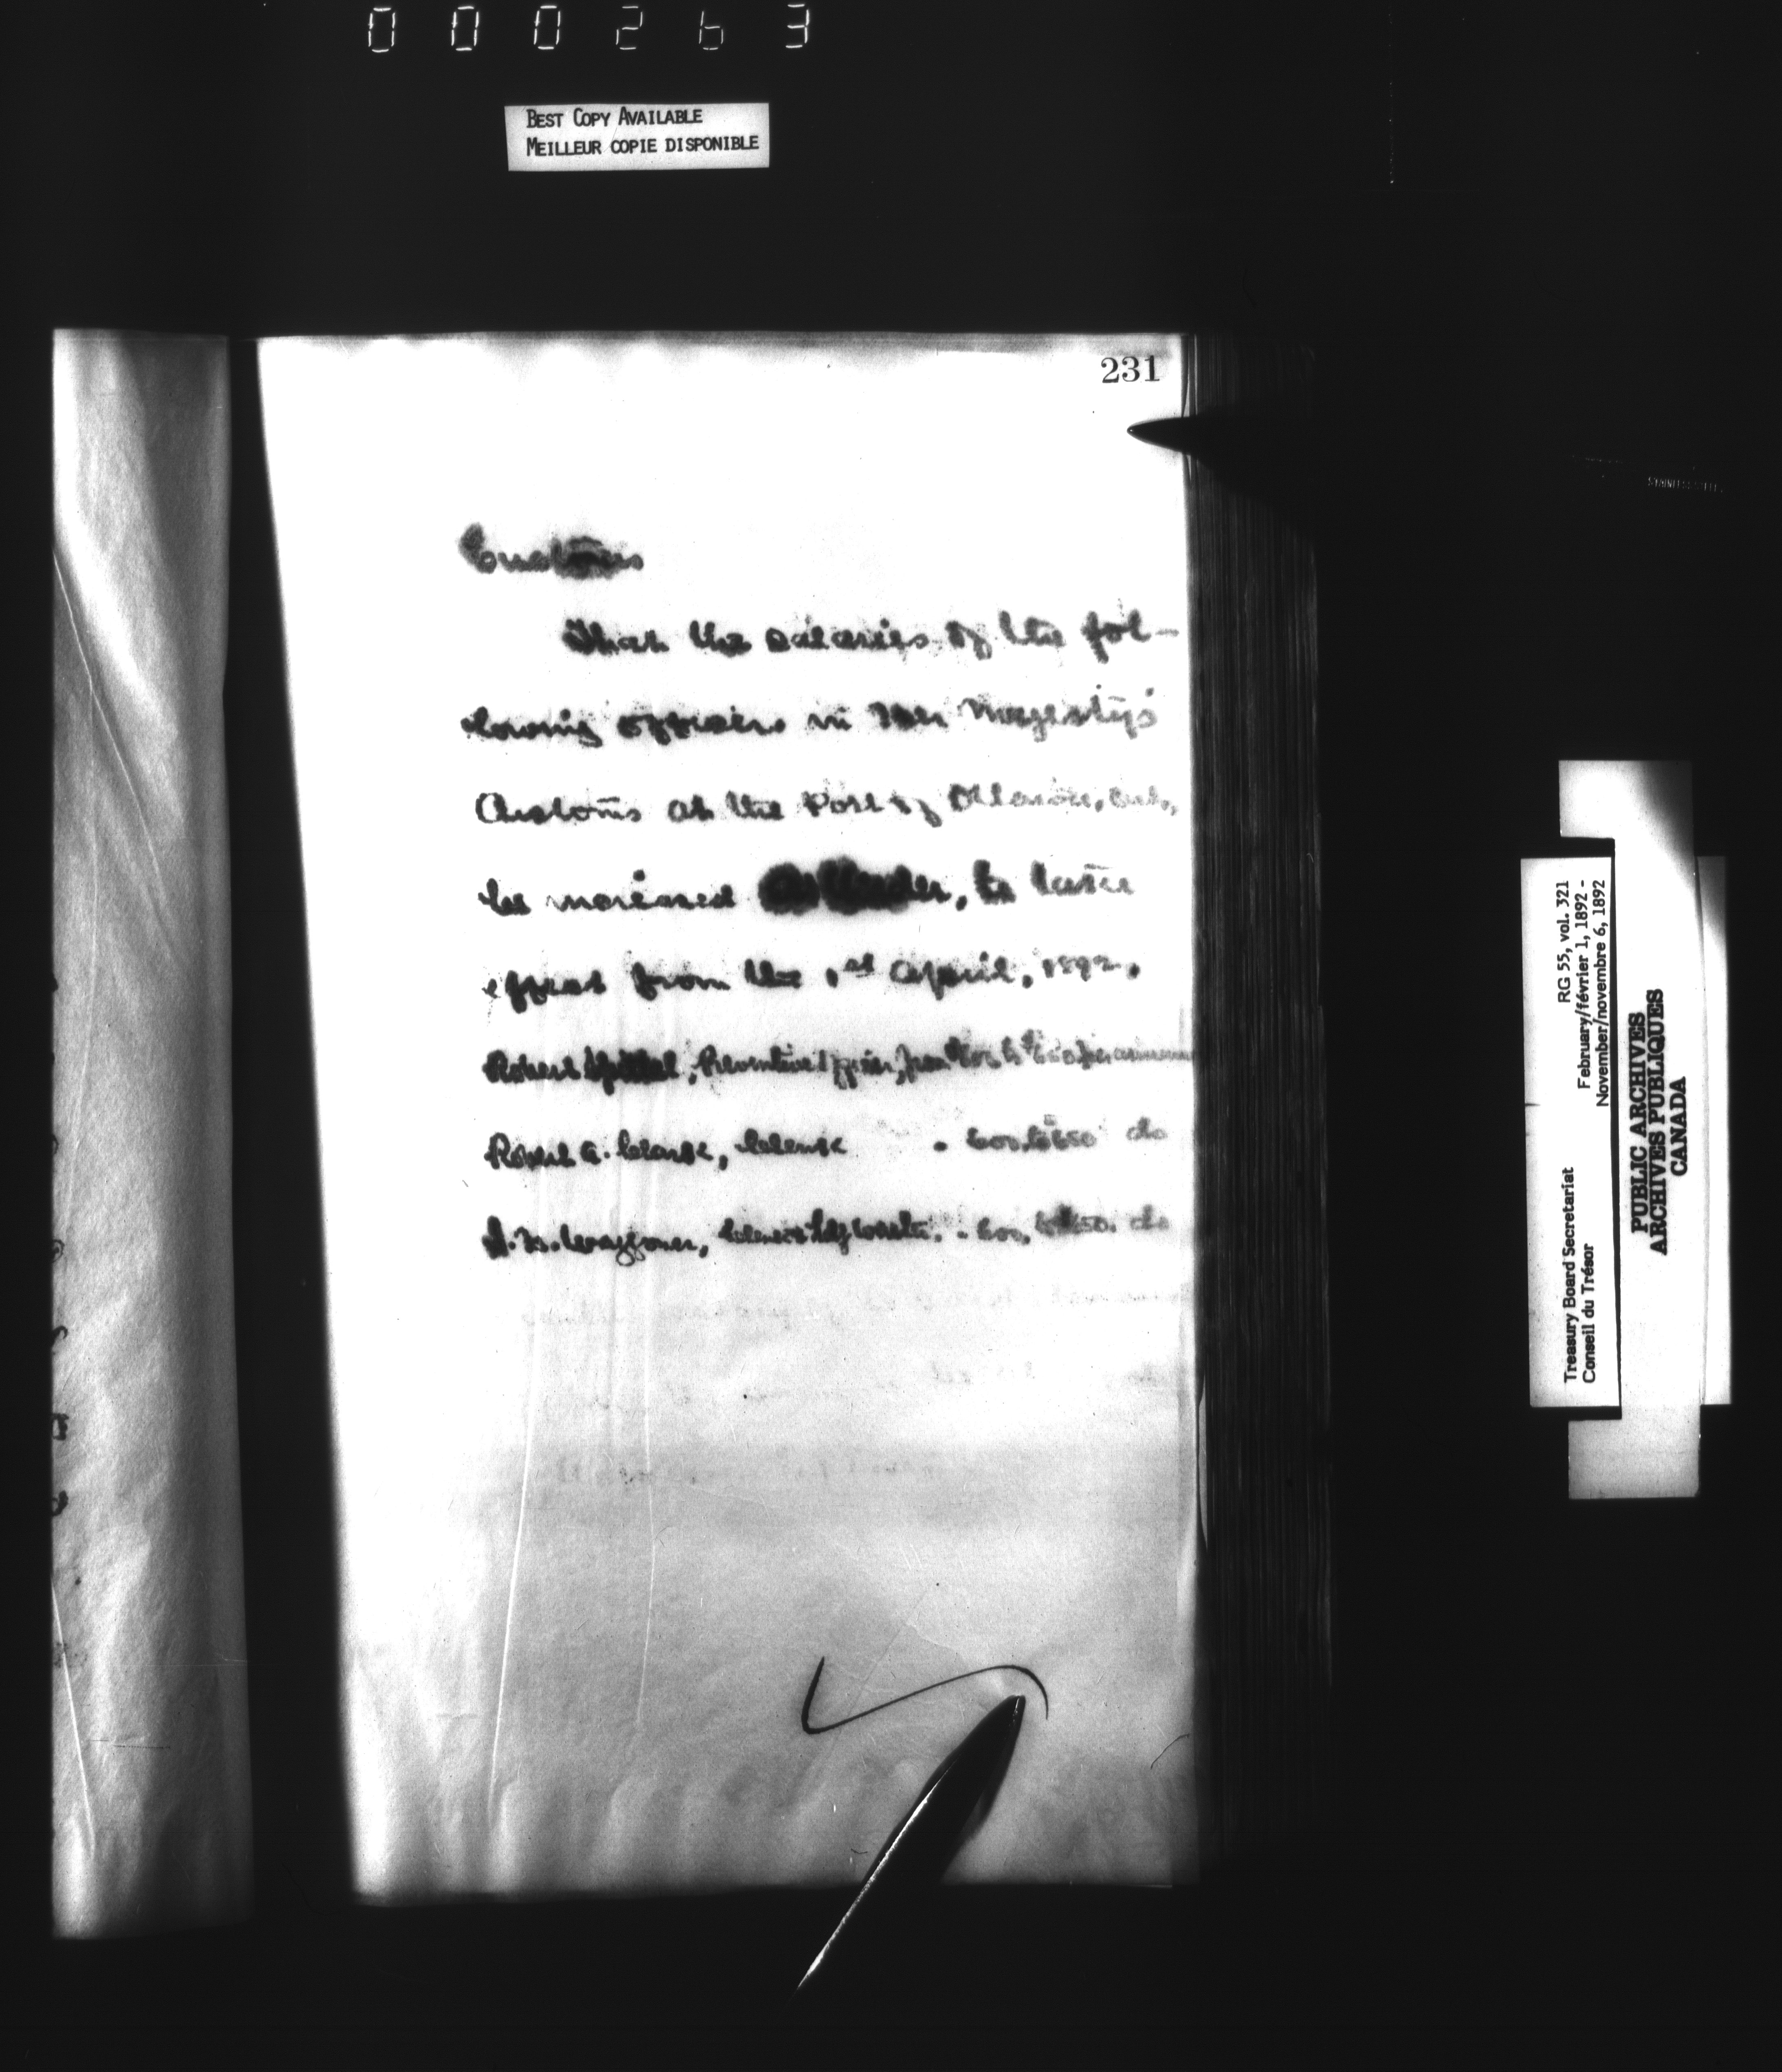 000263
BEST COPY AVAILABLE
MEILLEUR COPIE DISPONIBLE
231
Customs
That the salaries of the fol-
lowing officers in Her Majesty's
Customs at the Port of Ottawa, Ont.,
be increased as under, to take
effect from the 1st April, 1892.
Robert, Preventive Officer, from $600 to $650 per annum
Robert A. Clark, Clerk " 600 to 650 do
Waggoner, Clerk & " 600 to 650. do
Treasury Board Secretariat RG 55, vol. 321
Conseil du Trésor February/février 1, 1892 -
November/novembre 6, 1892
PUBLIC ARCHIVES
ARCHIVES PUBLIQUES
CANADA